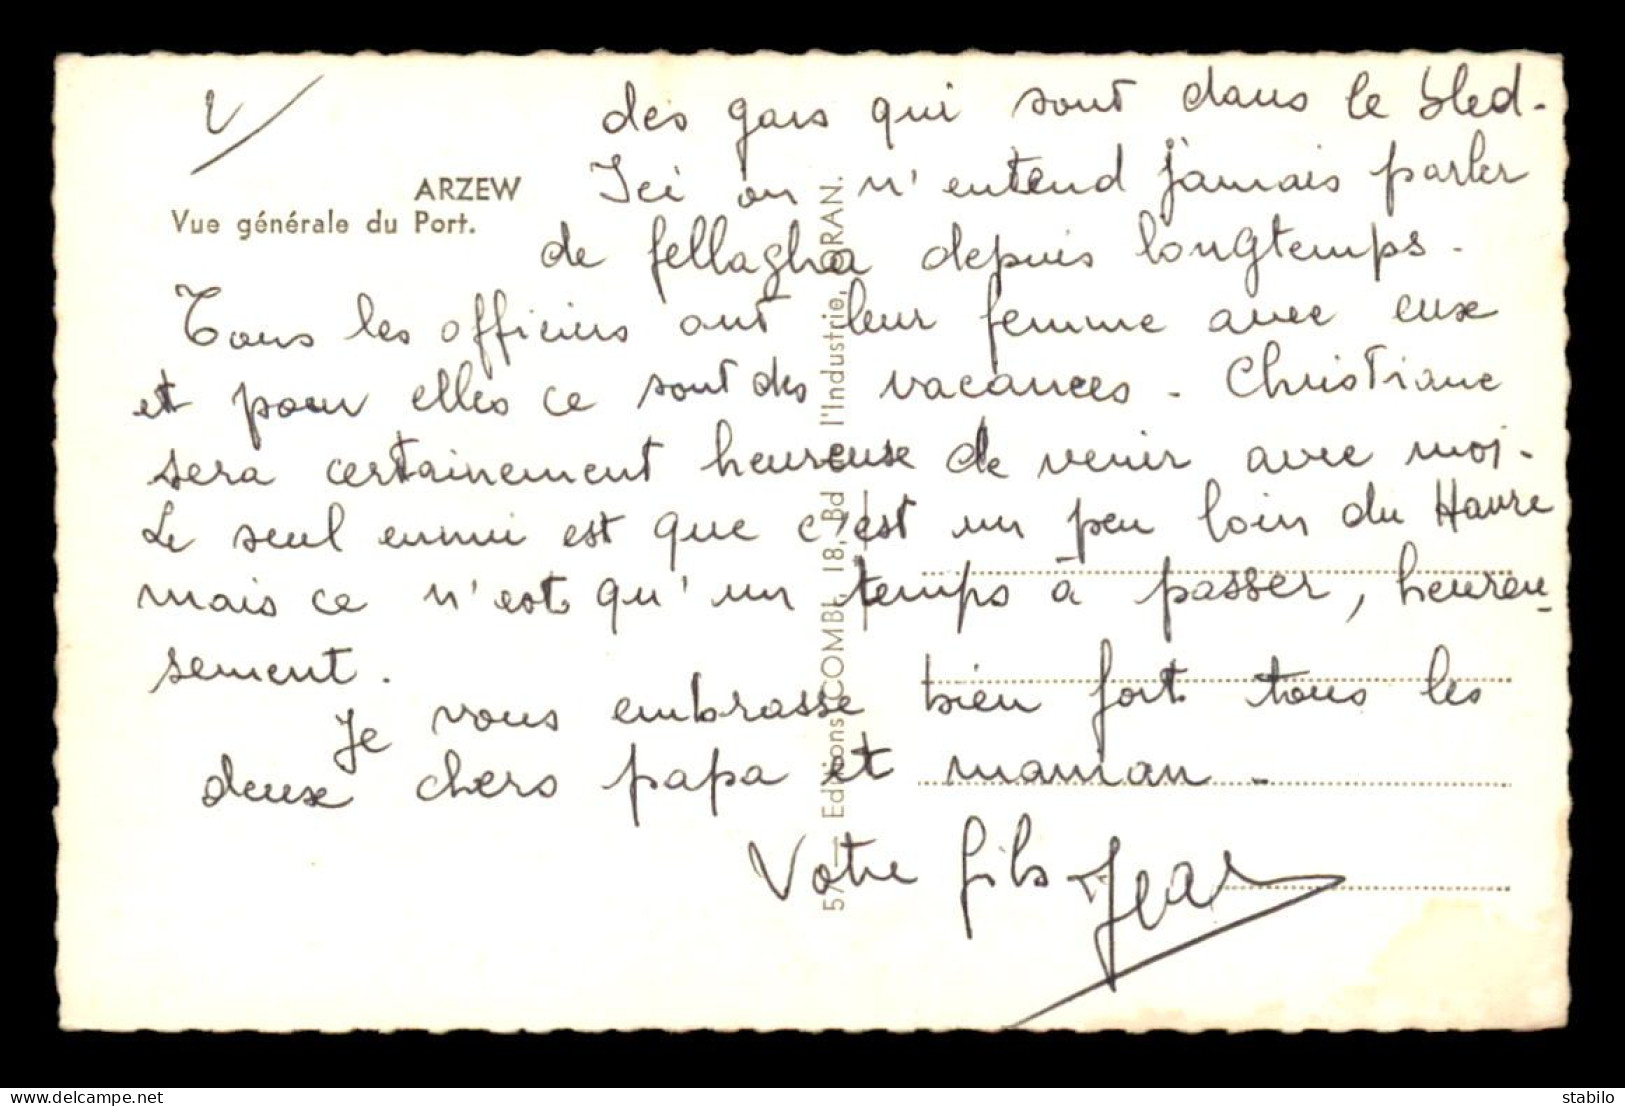 V
des gars qui sont dans le bled.
ARZEW
Ici on n'entend jamais parler
Vue générale du Port.
de fellagha depuis longtemps.
Tous les officiers ont leur femme avec eux
et pour elles ce sont des vacances. Christiane
sera certainement heureuse de venir avec moi.
Le seul ennui est que c'est un peu loin du Havre
mais ce n'est qu'un temps à passer, heureu-
sement.
Je vous embrasse bien fort tous les
deux chers papa et maman.
Votre fils Jean
Editions COMBI, 18, Bd de l'Industrie, ORAN.
delcampe.net
stanislo